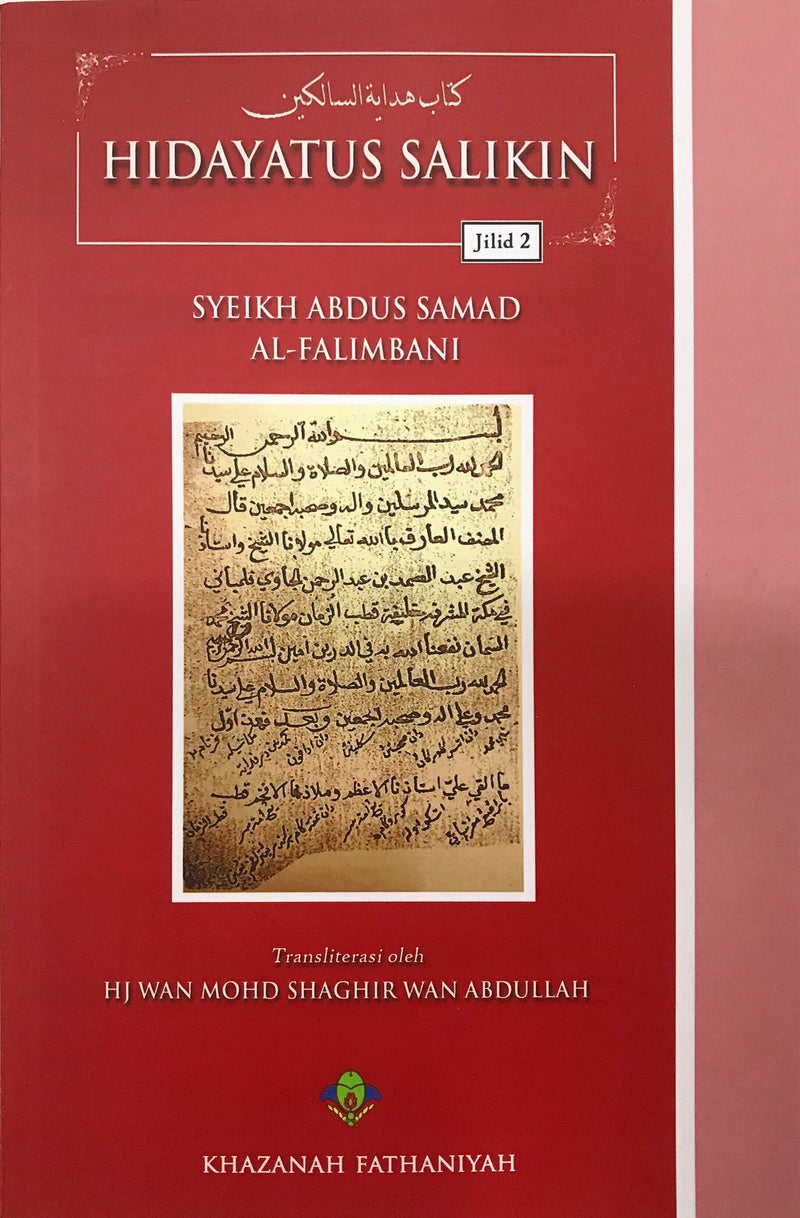 كتاب هداية السالكين
HIDAYATUS SALIKIN
Jilid 2
SYEIKH ABDUS SAMAD
AL-FALIMBANI
بسم الله الرحمن الرحيم
الحمد لله رب العالمين والصلاة والسلام على سيدنا
محمد سيد المرسلين واله وصحبه اجمعين قال
المصنف العارف بالله تعالى مولانا الشيخ واستاذنا
الشيخ عبد الصمد بن عبد الرحمن الجاوي فلمباني
في مكة المشرفه خليفة قطب الزمان مولانا الشيخ محمد
السمان نفعنا الله به في الدارين امين بسم الله الرحمن الرحيم
الحمد لله رب العالمين والصلاة والسلام على سيدنا
محمد وعلى اله وصحبه اجمعين وبعد فمن اول
ما القي علي استاذنا الاعظم وملاذنا الافخم قطب
قطب الزمان
Transliterasi oleh
HJ WAN MOHD SHAGHIR WAN ABDULLAH
KHAZANAH FATHANIYAH